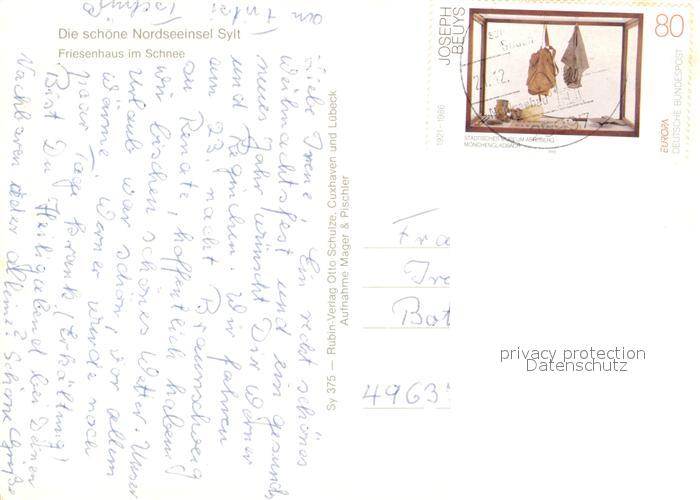 Die schöne Nordseeinsel Sylt
Friesenhaus im Schnee
Liebe Irene! Ein recht schönes
Weihnachtsfest und ein gesundes
neues Jahr wünscht Dir Werner
und Reginchen. Wir fahren
am 23. nach Braunschweig
zu Renate, hoffentlich haben
wir bischen schönes Wetter. Unser
Urlaub war schön, vor allem
Wärme. Werner wurde noch
paar Tage krank (Erkältung)
Bist Du Heiligabend bei Deinen
Nachbaren oder alleine? Schöne Grüße
Sy 375 — Rubin-Verlag Otto Schulze, Cuxhaven und Lübeck
Aufnahme Mager & Pischler
JOSEPH
BEUYS
1921–1986
80
EUROPA
DEUTSCHE BUNDESPOST
STÄDTISCHES MUSEUM ABTEIBERG
MÖNCHENGLADBACH
Fra
Ire
Bat
4963
privacy protection
Datenschutz